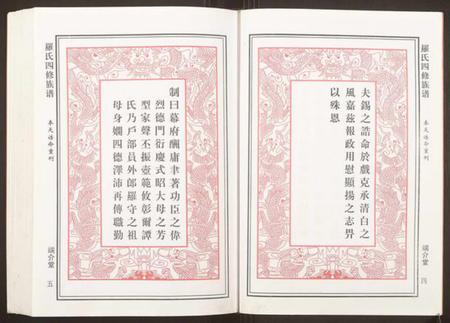 夫錫之誥命於戲克承清白之
風嘉茲報政用慰顯揚之志畀
以殊恩
羅氏四修族谱
奉天诰命重刊
四
羅氏四修族谱
奉天诰命重刊
五
制曰幕府酬庸聿著功臣之偉
烈德門衍慶式昭大母之芳
型家聲丕振壺範攸彰爾譚
氏乃戶部員外郎羅守之祖
母身嫻四德澤沛再傳職勤